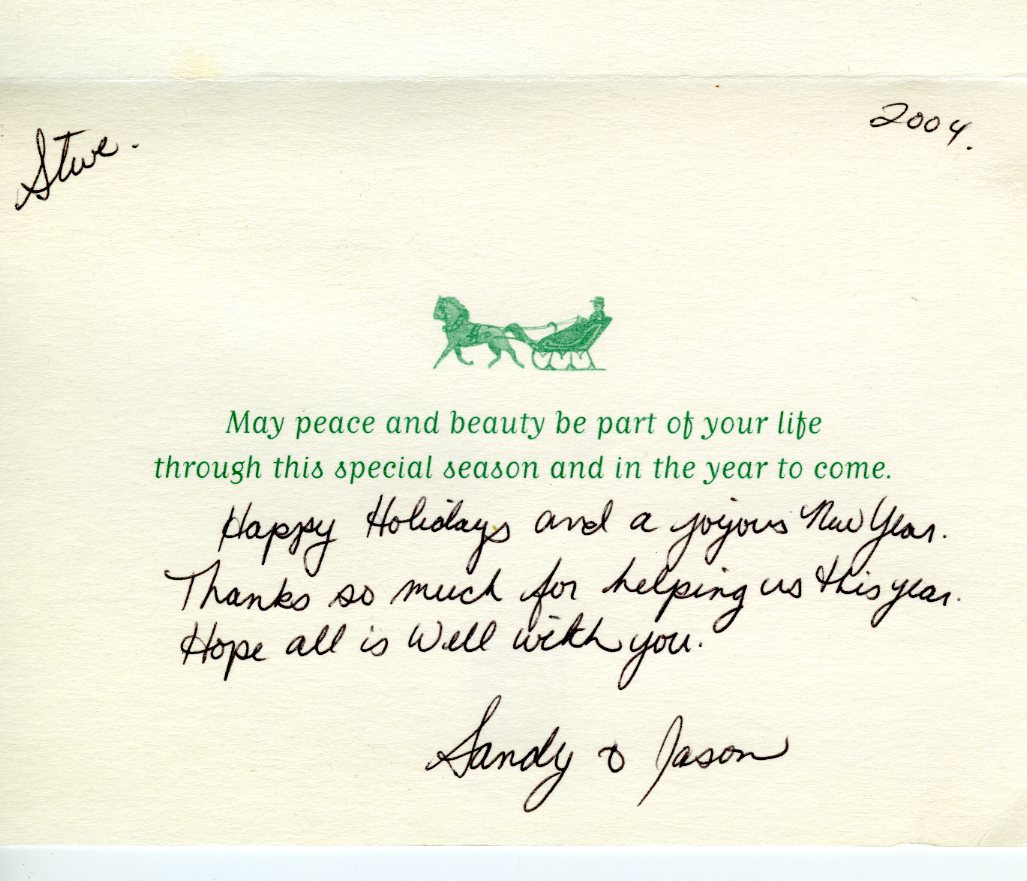 Steve.
2004.
May peace and beauty be part of your life
through this special season and in the year to come.
Happy Holidays and a joyous New Year.
Thanks so much for helping us this year.
Hope all is Well with you.
Sandy & Jason